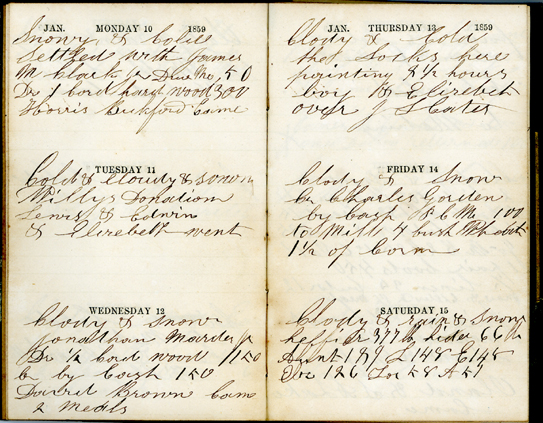 JAN. MONDAY 10 1859
Snowy & Cold
Settled with James
M Clark Jr Due Me 50
Dr 1 cord hard wood 300
Horris Bickford Came
TUESDAY 11
Cold & Cloudy & snow
Willys Donation
Lewis & Edwin
& Elizebeth went
WEDNESDAY 12
Clody & Snow
Jonathan Marden Jr
Dr 1/2 cord wood 150
by Cash 150
David Brown Came
2 Meals
JAN. THURSDAY 13 1859
Clody & Cold
Locks here
5 1/2 hours
& Elizebeth
over J S Cates
FRIDAY 14
Clody & Snow
Charles Gorden
by Cash 100
to Mill 4 bush
1 1/2 of Corn
SATURDAY 15
Clody & Rain & Snow
heffer 377 lb hide 66 lb
189 148 148
126 58